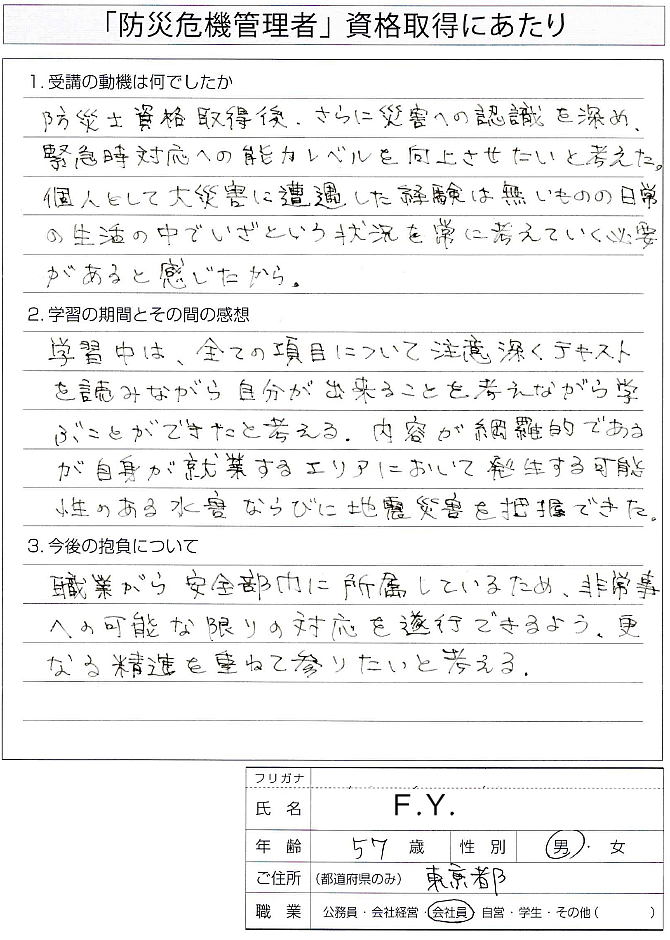 「防災危機管理者」資格取得にあたり
1. 受講の動機は何でしたか
防災士資格取得後、さらに災害への認識を深め、
緊急時対応への能力レベルを向上させたいと考えた。
個人として大災害に遭遇した経験は無いものの日常
の生活の中でいざという状況を常に考えていく必要
があると感じたから。
2. 学習の期間とその間の感想
学習中は、全ての項目について注意深くテキスト
を読みながら自分が出来ることを考えながら学
ぶことができたと考える。内容が網羅的である
が自身が就業するエリアにおいて発生する可能
性のある水害ならびに地震災害を把握できた。
3. 今後の抱負について
職業がら安全部門に所属しているため、非常事
への可能な限りの対応を遂行できるよう、更
なる精進を重ねて参りたいと考える。
フリガナ
氏 名 F.Y.
年 齢 57 歳 性 別 男・女
ご住所 (都道府県のみ) 東京都
職 業 公務員・会社経営・会社員・自営・学生・その他( )